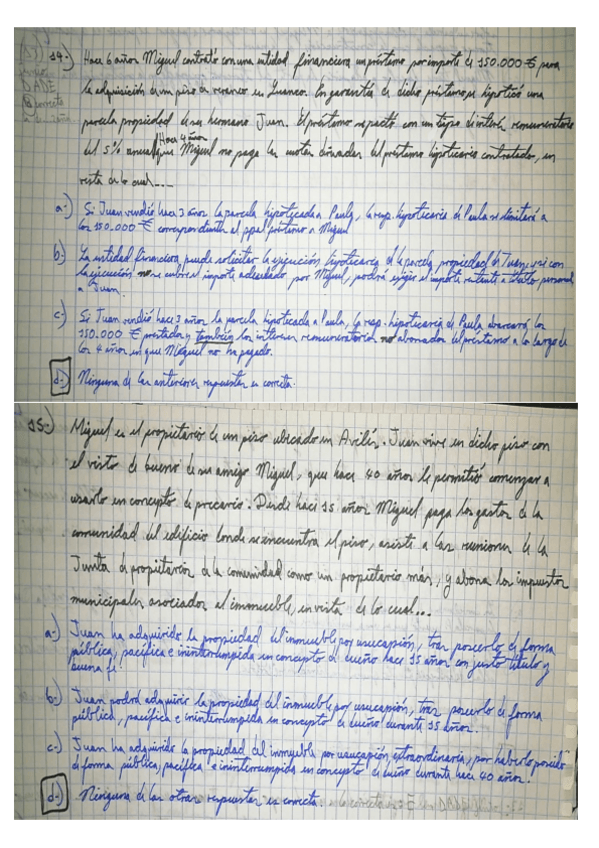 14.) Hace 6 años Miguel contrató con una entidad financiera un préstamo por importe de 150.000 € para
la adquisición de un piso de veraneo en Luanco. En garantía de dicho préstamo se hipotecó una
parcela propiedad de su hermano Juan. El préstamo se pactó con un tipo de interés remuneratorio
del 5% anual. Hace 4 años que Miguel no paga las cuotas dimanadas del préstamo hipotecario contratado, en
vista de lo cual....
a.) Si Juan vendió hace 3 años la parcela hipotecada a Paula, la resp. hipotecaria de Paula se limitará a
los 150.000 € correspondiente al ppal préstamo a Miguel
b.) La entidad financiera puede solicitar la ejecución hipotecaria de la parcela propiedad de Juan, y si con
la ejecución no se cubre el importe adeudado por Miguel, podrá exigir el importe restante a título personal
a Juan.
c.) Si Juan vendió hace 3 años la parcela hipotecada a Paula, la resp. hipotecaria de Paula abarcará los
150.000 € prestados y también los intereses remuneratorios no abonados del préstamo a lo largo de
los 4 años en que Miguel no ha pagado.
d.) Ninguna de las anteriores respuestas es correcta.
15.) Miguel es el propietario de un piso ubicado en Avilés. Juan vive en dicho piso con
el visto de bueno de su amigo Miguel, que hace 40 años le permitió comenzar a
usarlo en concepto de precario. Desde hace 15 años Miguel paga los gastos de la
comunidad del edificio donde se encuentra el piso, asiste a las reuniones de la
Junta de propietarios de la comunidad como un propietario más, y abona los impuestos
municipales asociados al inmueble, en vista de lo cual...
a.) Juan ha adquirido la propiedad del inmueble por usucapión, tras poseerlo de forma
pública, pacífica e ininterrumpida en concepto de dueño hace 15 años con justo título y
buena fe.
b.) Juan podrá adquirir la propiedad del inmueble por usucapión, tras poseerlo de forma
pública, pacífica e ininterrumpida en concepto de dueño durante 15 años.
c.) Juan ha adquirido la propiedad del inmueble por usucapión extraordinaria, por haberlo poseído
de forma pública, pacífica e ininterrumpida en concepto de dueño durante hace 40 años.
d.) Ninguna de las otras respuestas es correcta.